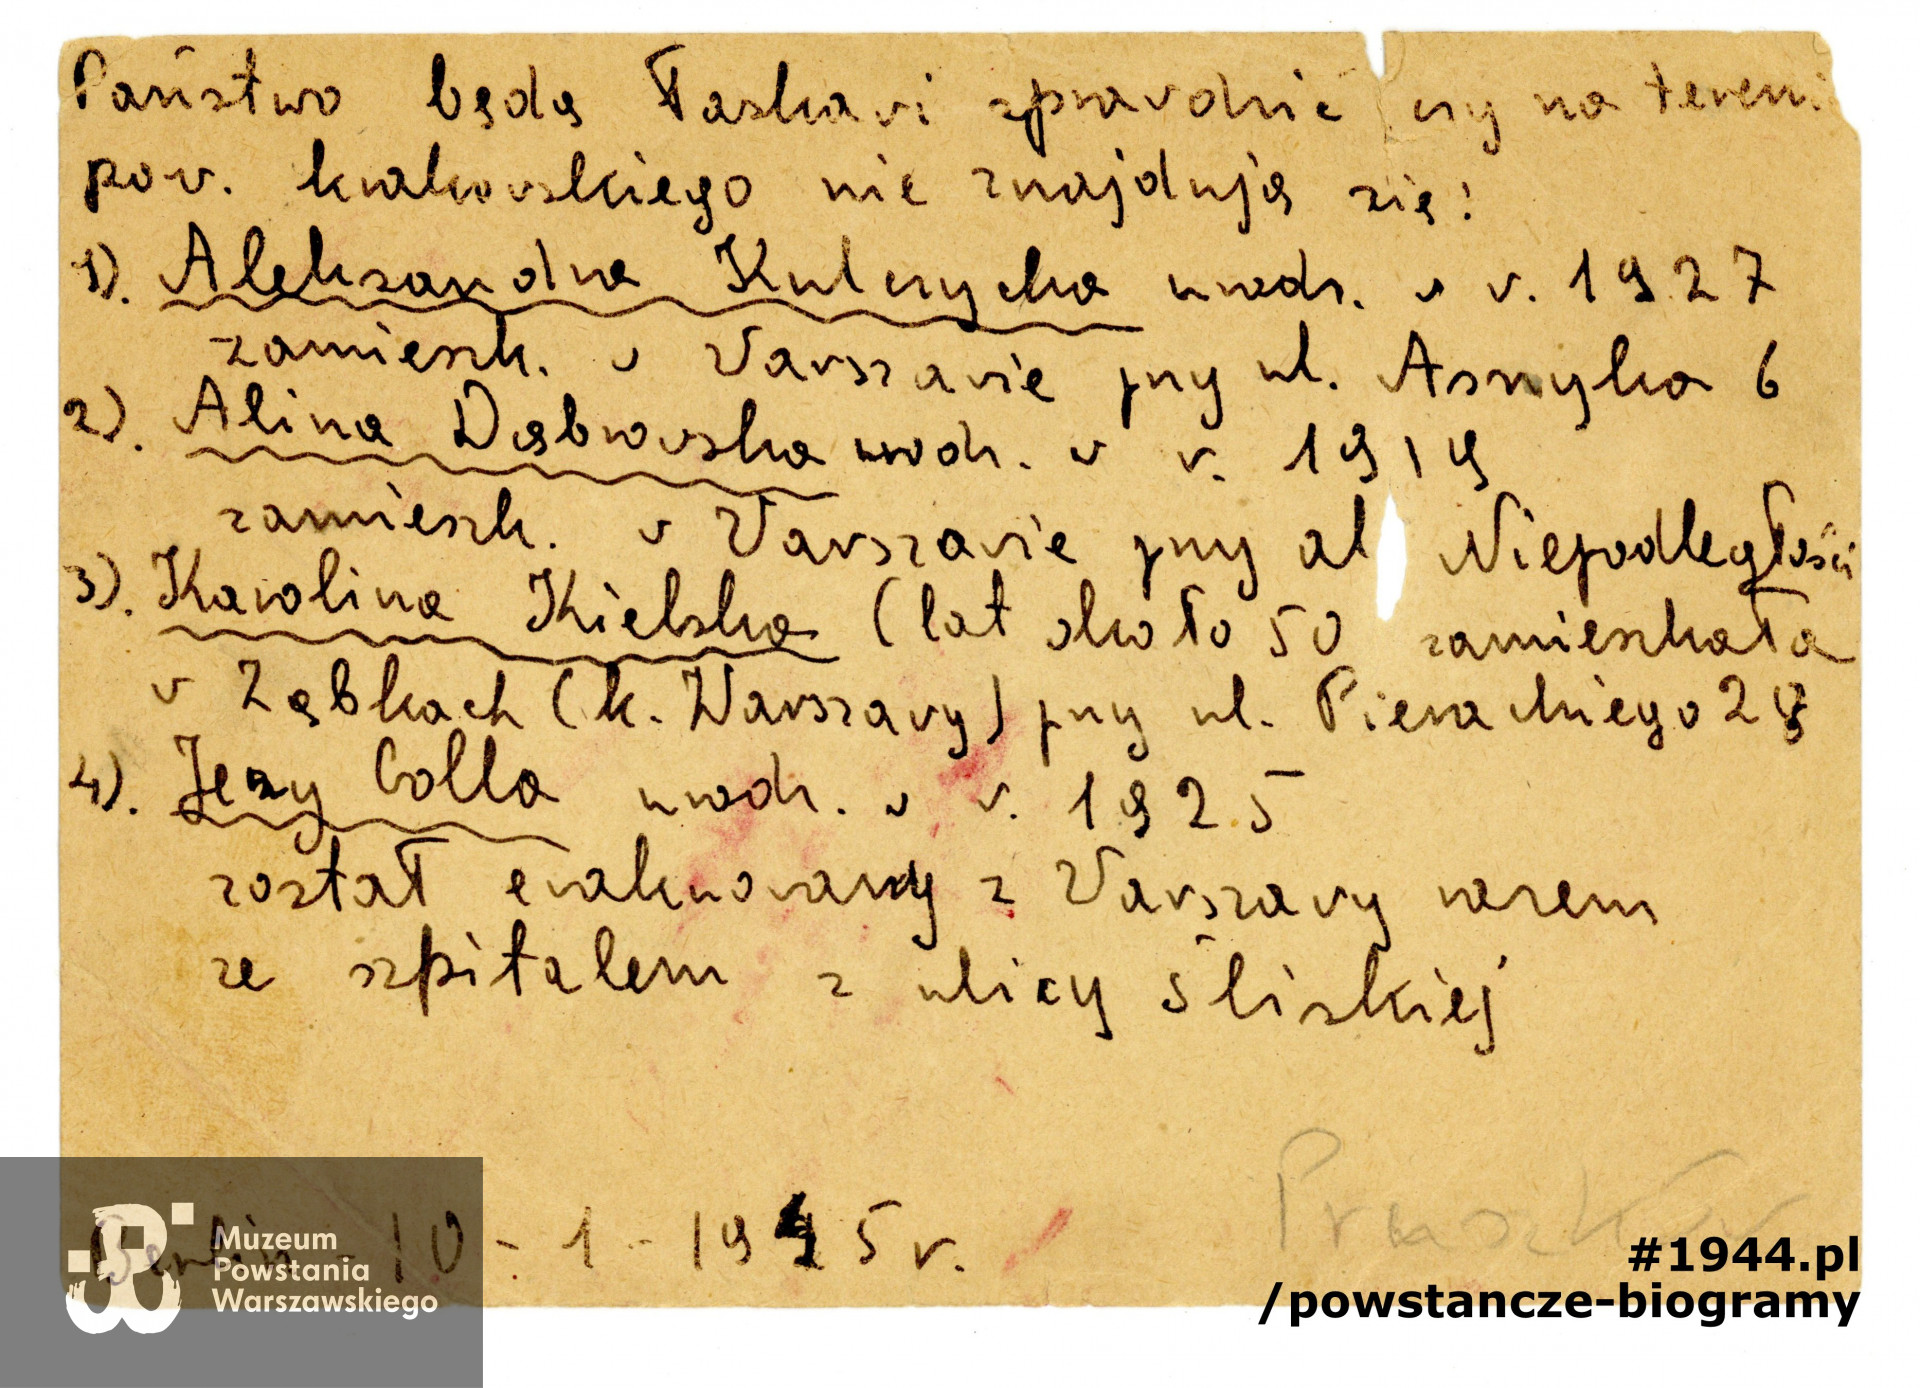 Państwo będą łaskawi sprawdzić czy na tereni
pow. krakowskiego nie znajdują się:
1). Aleksandra Kulczycka urodz. w r. 1927
zamieszk. w Warszawie przy ul. Asnyka 6
2). Alina Dąbrowska urodz. w r. 1919
zamieszk. w Warszawie przy al Niepodległości
3). Karolina Kielska (lat około 50 zamieszkała
w Ząbkach (k. Warszawy) przy ul. Pierackiego 28
4). Jerzy Colla urodz. w r. 1925
został ewakuowany z Warszawy razem
ze szpitalem z ulicy Śliskiej
Berlin - 10 - 1 - 1945 r.
Pruszków
Muzeum
Powstania
Warszawskiego
#1944.pl
/powstancze-biogramy